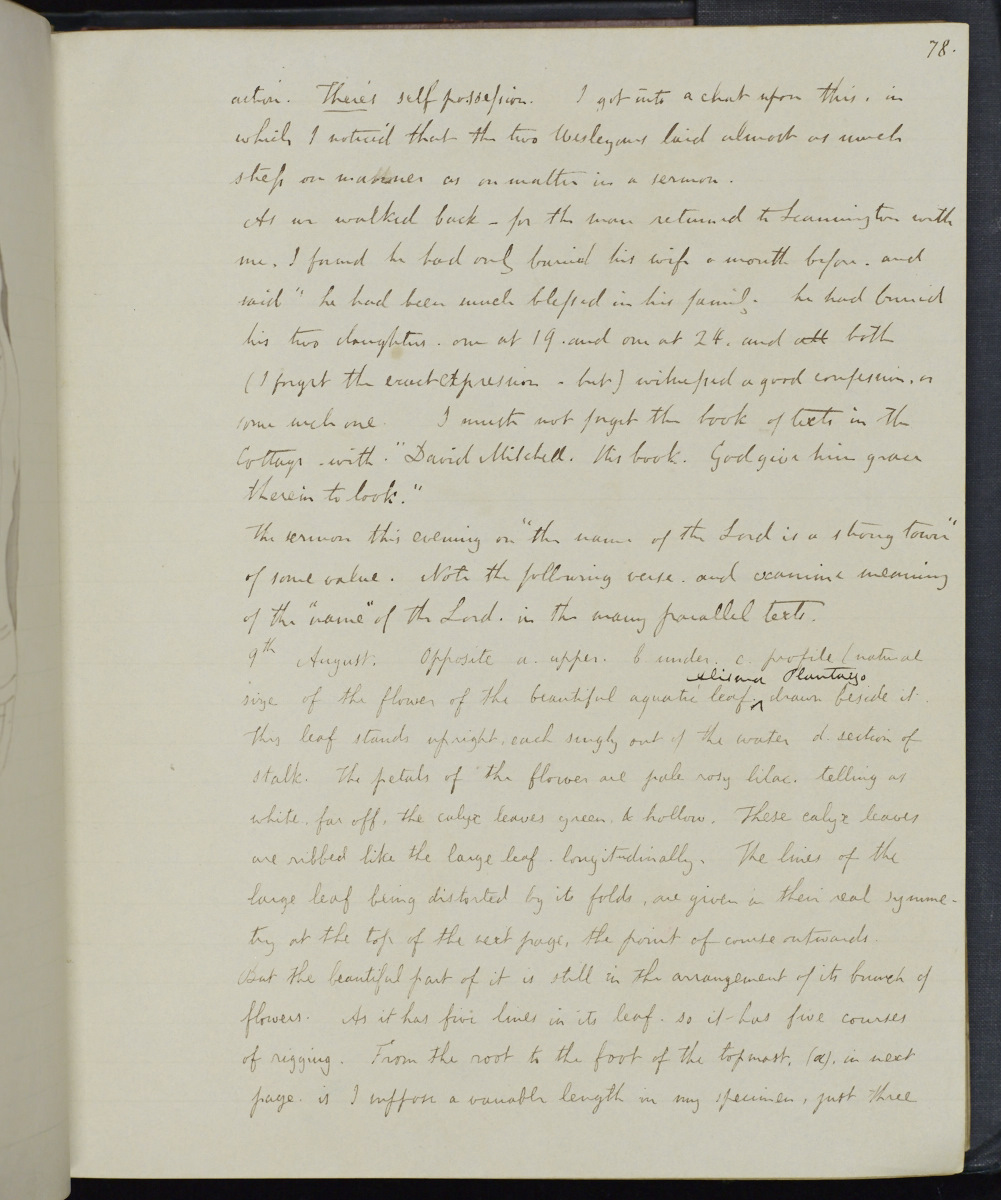 78.
action. There's self possession. I got into a chat upon this. in
which I noticed that the two Wesleyans laid almost as much
stress on manner as on matter in a sermon.
As we walked back - for the man returned to Leamington with
me. I found he had only buried his wife a month before. and
said " he had been much blessed in his family. he had buried
his two daughters. one at 19. and one at 24. and all both
(I forget the exact expression - but) witnessed a good confession. or
some such one. I must not forget the book of texts in the
Cottage - with. "David Mitchell. His book. God give him grace
therein to look."
The sermon this evening on "the name of the Lord is a strong tower"
of some value. Note the following verse. and examine meaning
of the "name" of the Lord. in the many parallel texts.
9th August. Opposite a. upper. b under. c. profile (natural
Alisma Plantago
size of the flower of the beautiful aquatic leaf. ^ drawn beside it.
This leaf stands upright. each singly out of the water d. section of
stalk. The petals of the flower are pale rosy lilac. telling as
white. far off. the calyx leaves green. & hollow. These calyx leaves
are ribbed like the large leaf - longitudinally. The lines of the
large leaf being distorted by its folds, are given in their real symme-
try at the top of the next page, the point of course outwards.
But the beautiful part of it is still in the arrangement of its bunch of
flowers. As it has five lines in its leaf. so it has five courses
of rigging. From the root to the foot of the topmast, (a). in next
page. is I suppose a variable length in my specimen, just three